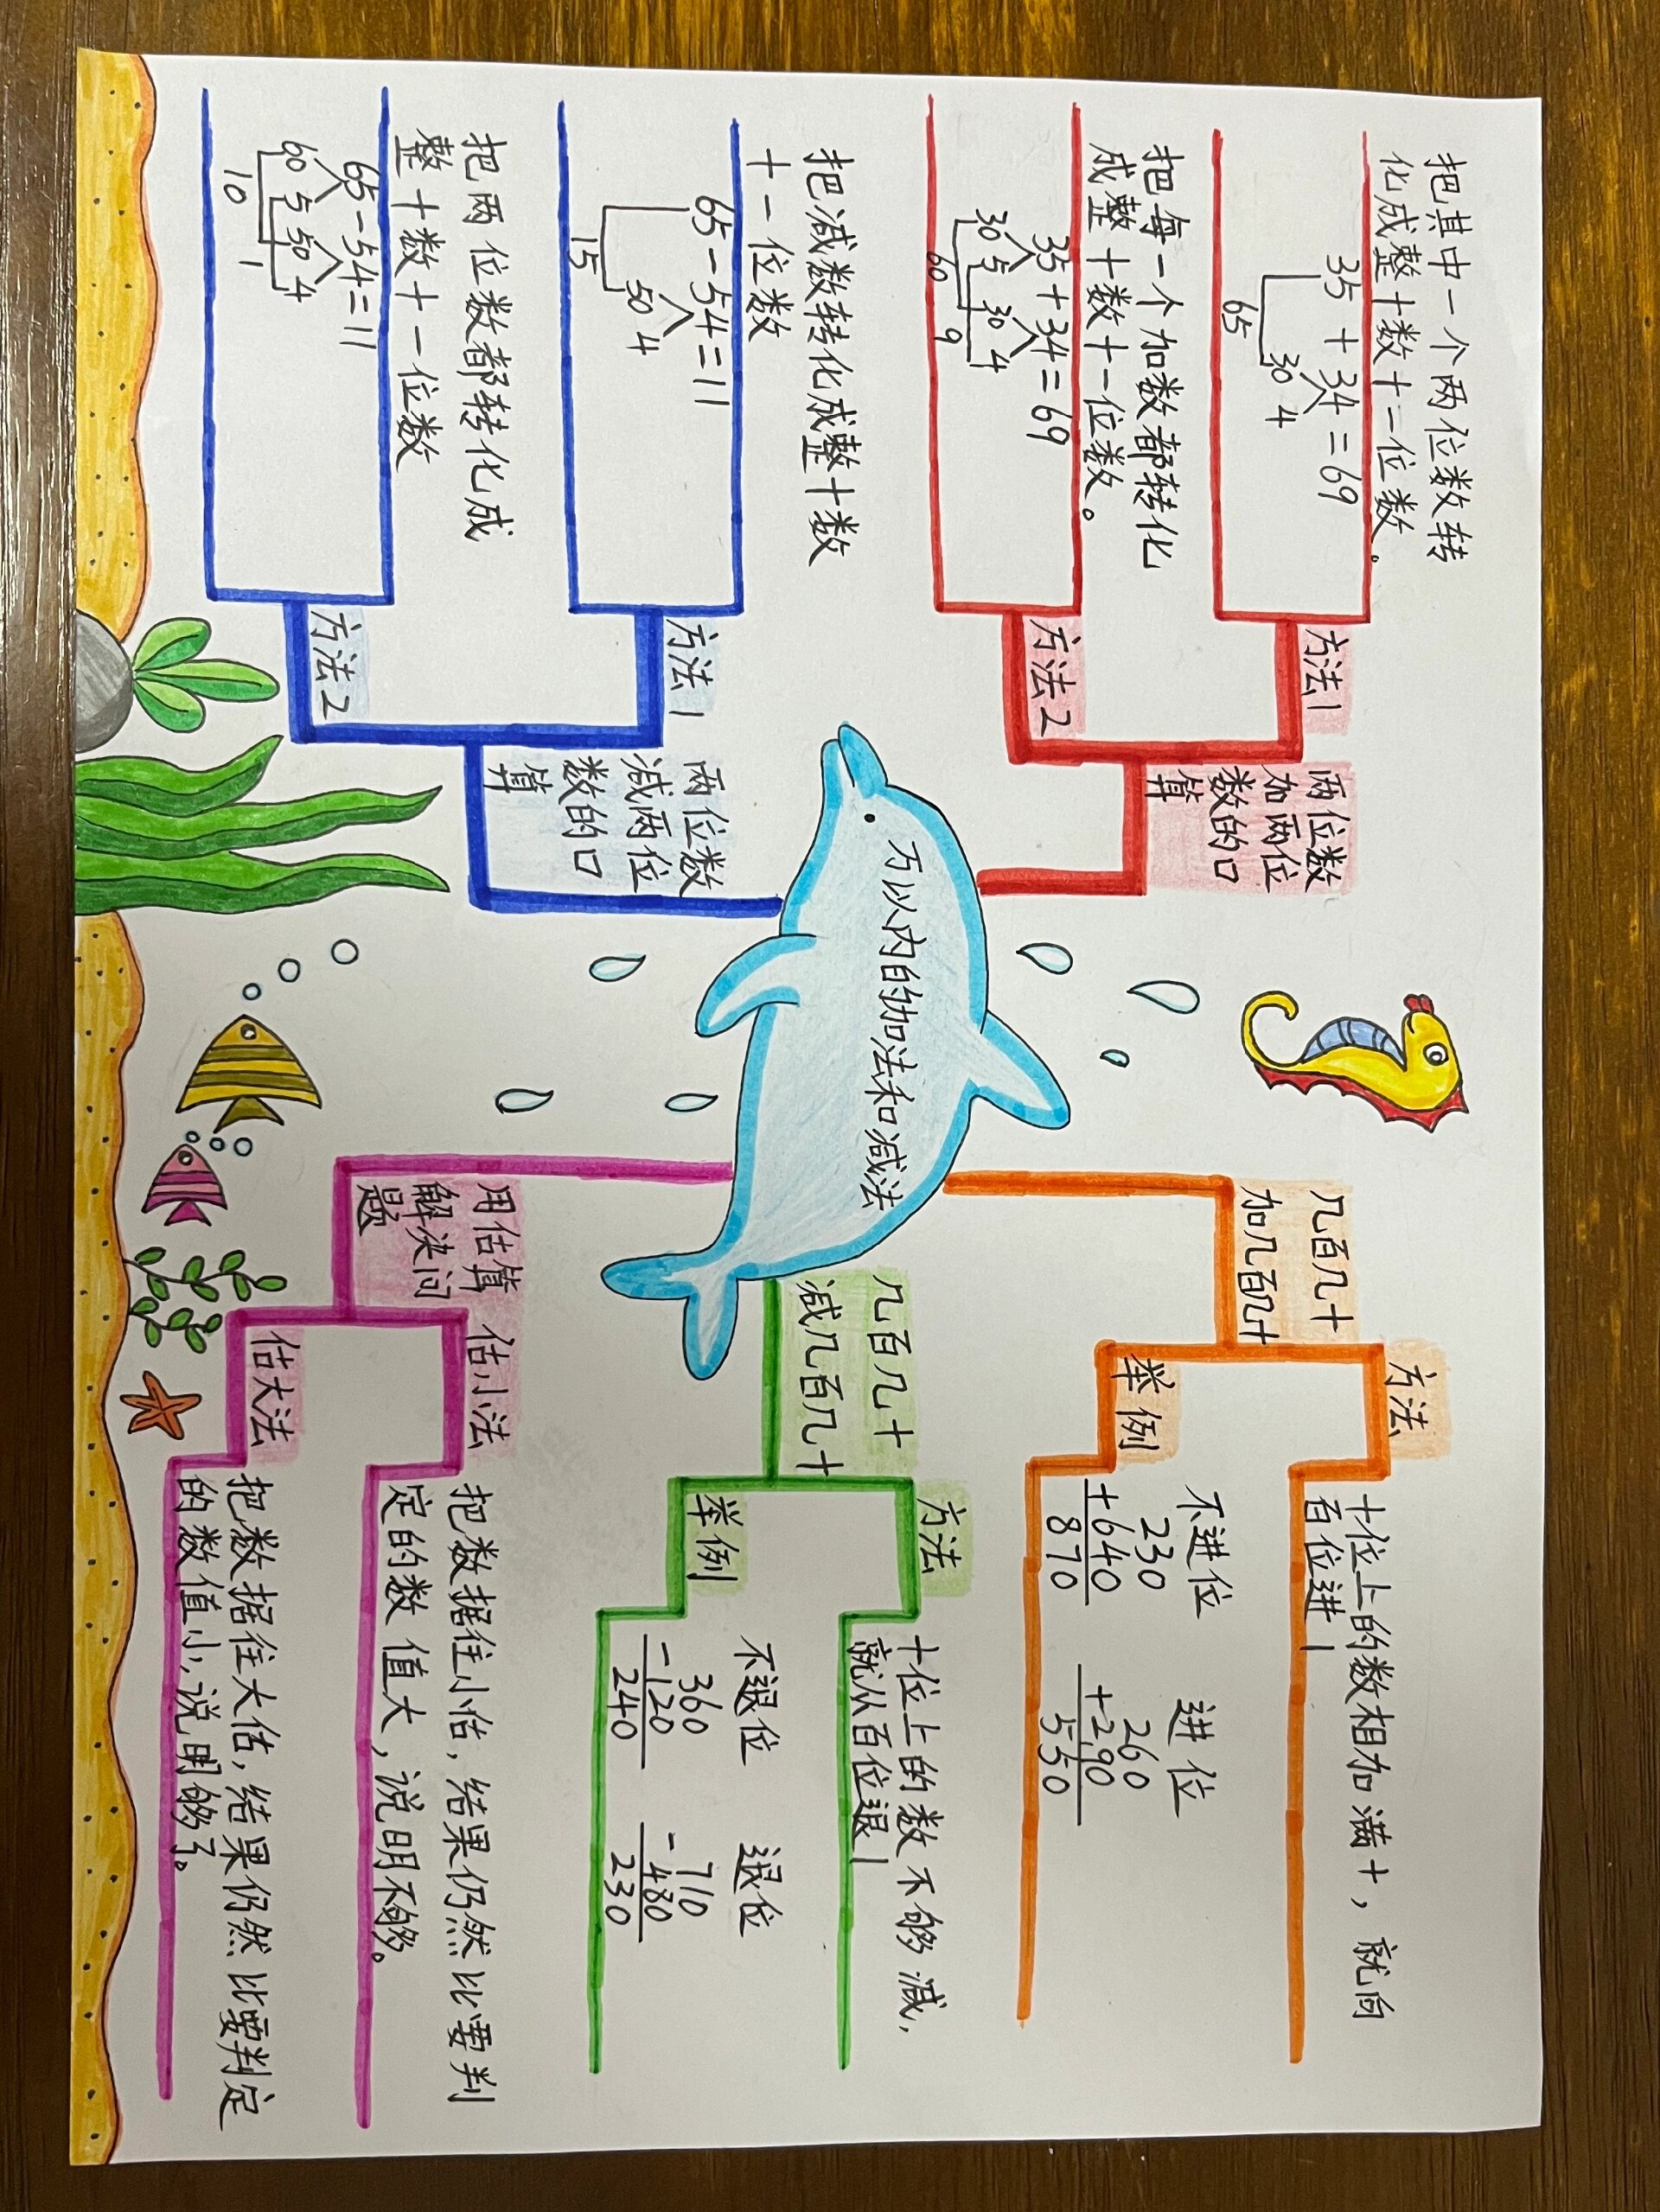 万以内的加法和减法
两位数
加两位
数的口
算
方法1
把其中一个两位数转
化成整十数十一位数。
35+34=69
30 4
65
方法2
把每一个加数都转化
成整十数十一位数。
35+34=69
30 5 30 4
60 9
两位数
减两位
数的口
算
方法1
把减数转化成整十数
十一位数
65-54=11
50 4
15
方法2
把两位数都转化成
整十数十一位数
65-54=11
60 5 50 4
10 1
几百几十
加几百几十
方法
十位上的数相加满十,就向
百位进1
举例
不进位
230
+640
870
进位
260
+290
550
几百几十
减几百几十
方法
十位上的数不够减,
就从百位退1
举例
不退位
360
-120
240
退位
710
-480
230
用估算
解决问
题
估小法
把数据往小估,结果仍然比要判
定的数值大,说明不够。
估大法
把数据往大估,结果仍然比要判定
的数值小,说明够了。